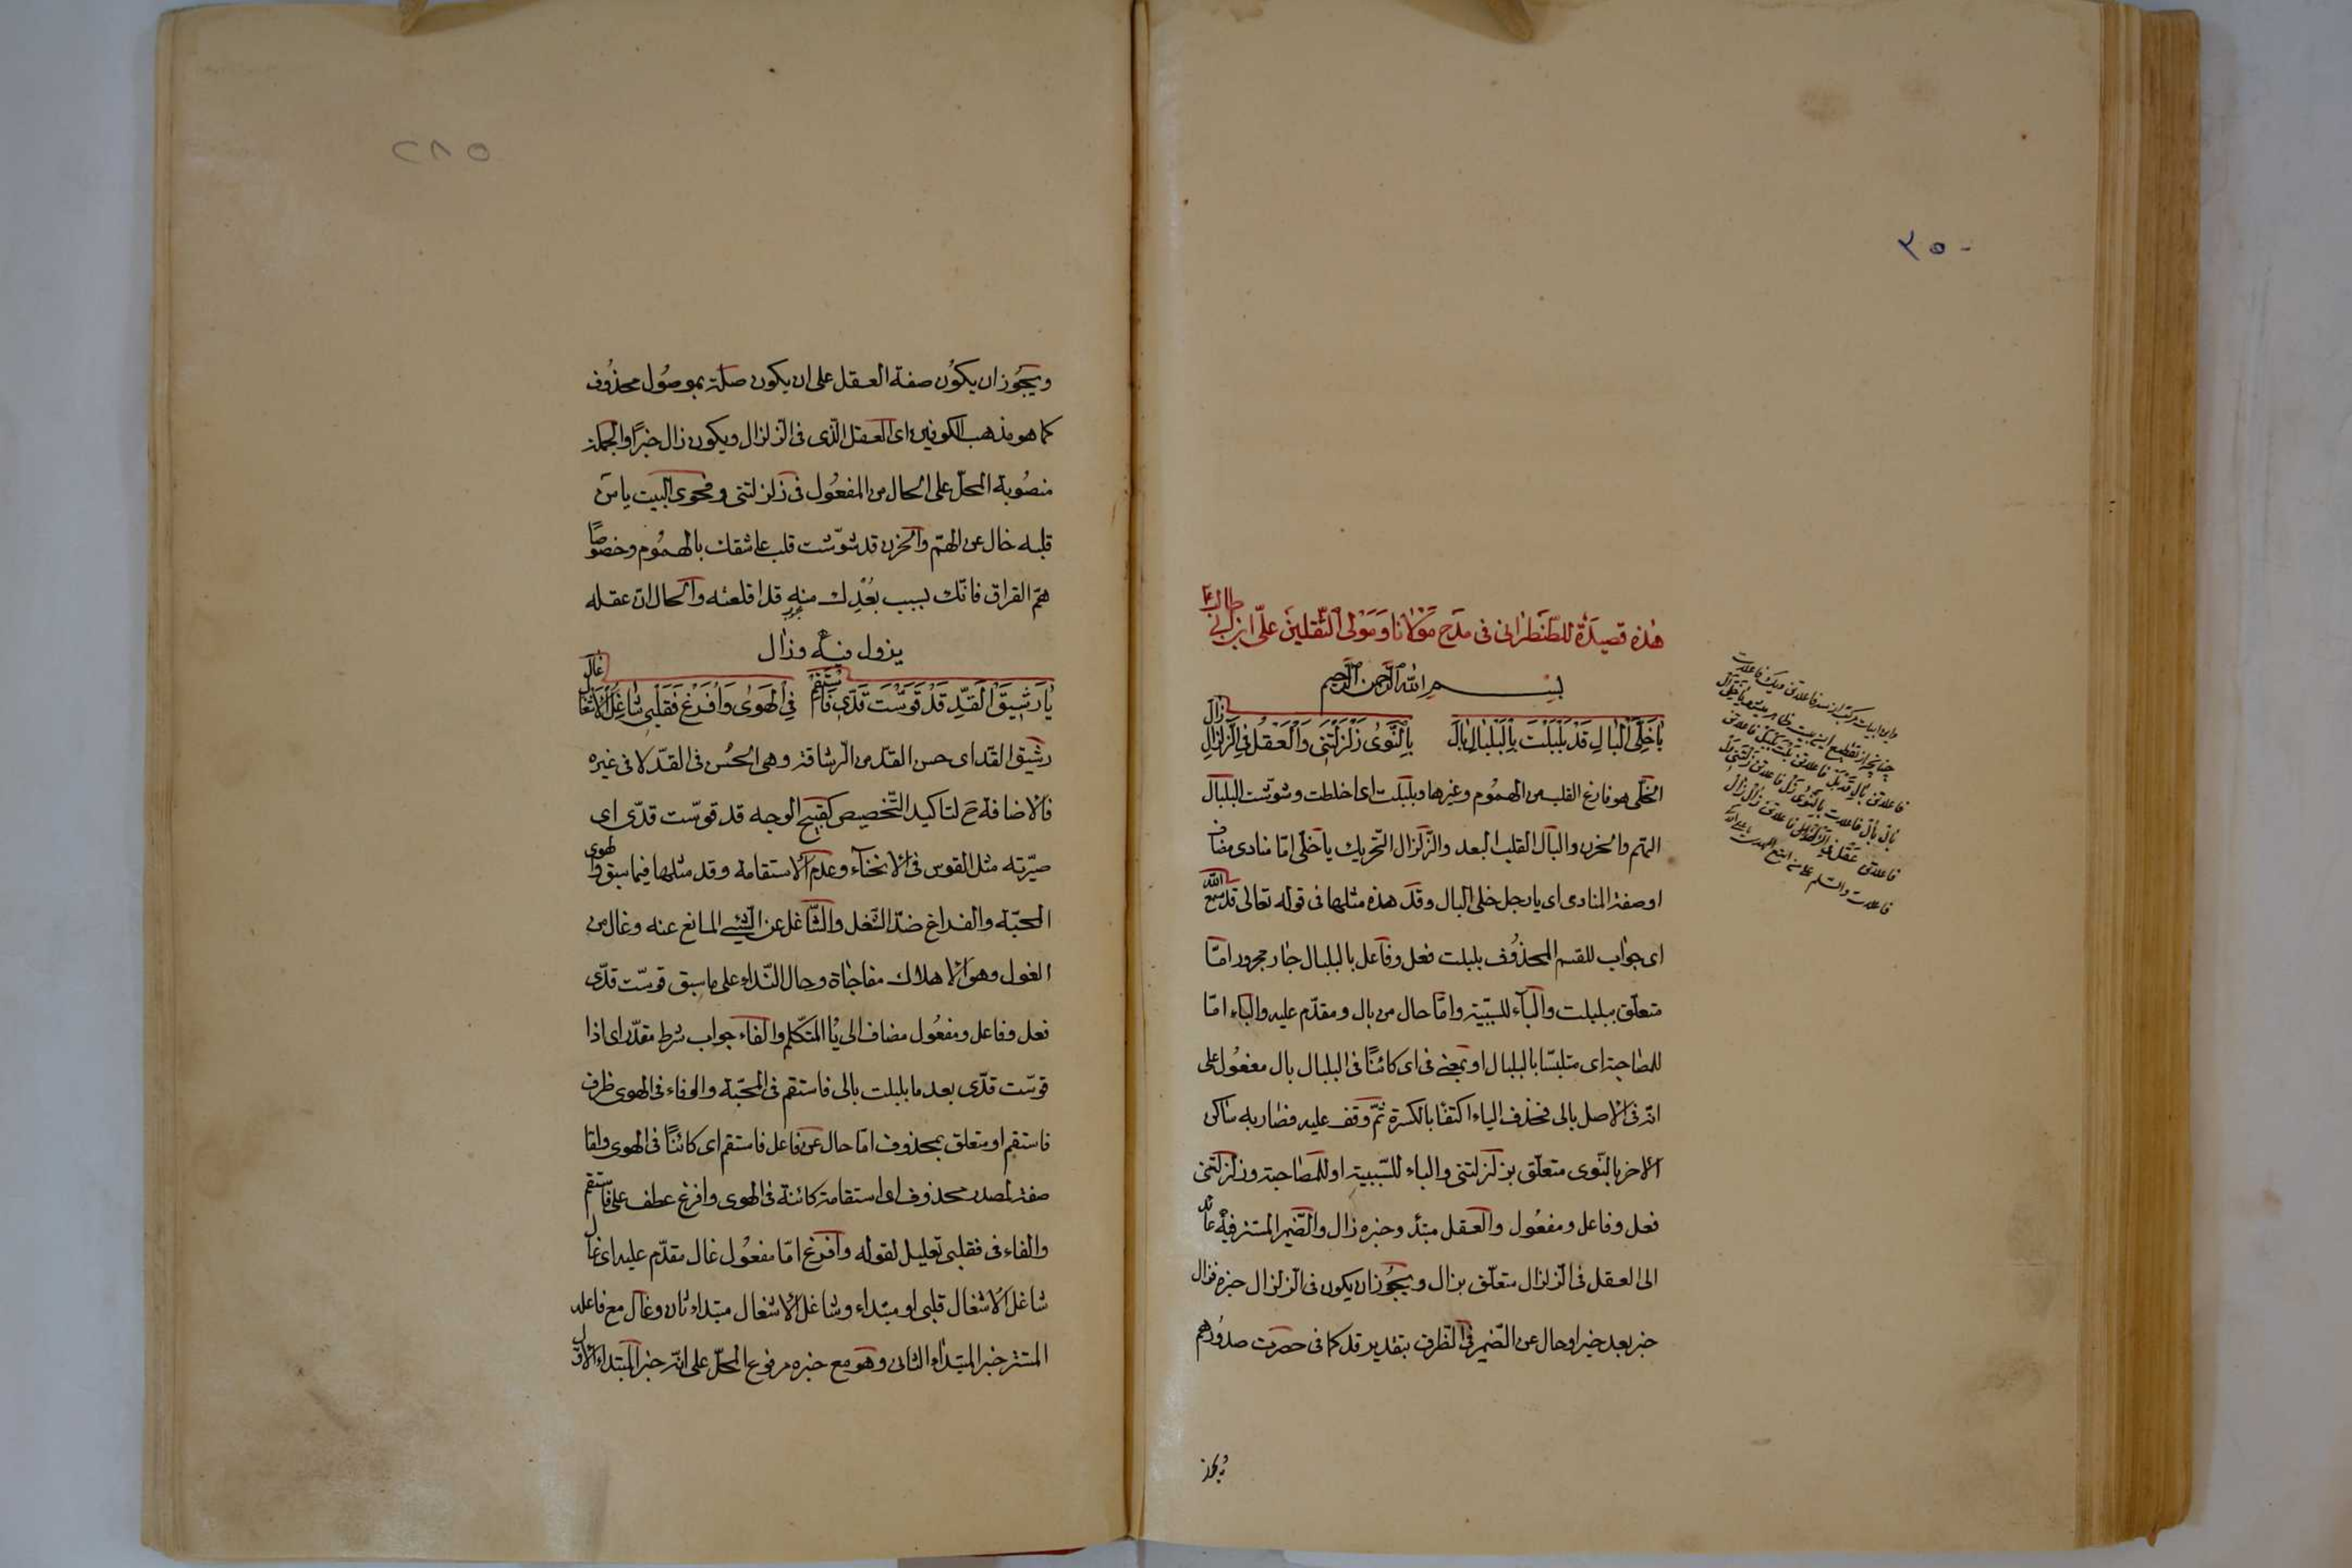 ٢٥٠
هذه قصيدة للطنطرانى فى مدح مولانا ومولى الثقلين على ابن ابى طالب ع
بسم الله الرحمن الرحيم
يا خلىّ البال قد بلبلت بالبلبال بال بالنّوى زلزلتنى والعقل فى الزلزال زال
الخلى هو فارغ القلب من الهموم وغيرها وبلبلت اى اخلطت وشوّشت البلبال
الهم والحزن والبال القلب البعد والزلزال التحريك يا خلى امّا منادى مضاف
او صفة المنادى اى يا رجل خلى البال وقد هذه مثلها فى قوله تعالى قد سمع الله
اى جواب للقسم المحذوف بلبلت فعل وفاعل بالبلبال جار مجرور امّا
متعلّق ببلبلت والباء للسببيّة وامّا حال من بال ومقدّم عليه والباء امّا
للمصاحبة اى متلبسًا بالبلبال او بمعنى فى اى كائنًا فى البلبال بال مفعول على
انّه فى الاصل بالى فحذف الياء اكتفًا بالكسرة ثمّ وقف عليه فصار به ساكن
الاخر بالنّوى متعلّق بزلزلتنى والباء للسّببية او للمصاحبة وزلزلتنى
فعل وفاعل ومفعول والعقل مبتدٔ وخبره زال والضّمير المستتر فيه عائد
الى العقل فى الزلزال متعلّق بزال ويجوز ان يكون فى الزلزال خبره فزال
خبر بعد خبر او حال عن الضّمير فى الظّرف بتقدير قد كما فى حصرت صدورهم
ويجوز
واين ابيات مركب از سه فاعلاتن ويك فاعلات
چنانچه از تقطيع اين بيت ظاهر يا خلى ال
فاعلاتن بال قد بل فاعلاتن بلت بلبل فاعلاتن
بال بال فاعلات بالنوى زل فاعلاتن زلتنى ول
فاعلاتن عقل فى الزل فاعلاتن زال زال
فاعلات والسلم على من اتبع الهدى
٢٨٥
ويجوز ان يكون صفة العقل على ان يكون صلة بموصول محذوف
كما هو مذهب الكوفيين اى العقل الّذى فى الزلزال ويكون زال خبرًا والجملة
منصوبة المحلّ على الحال من المفعول فى زلزلتنى وفحوى البيت يا من
قلبه خال عن الهمّ والحزن قد شوّشت قلب عاشقك بالهموم وخصوصًا
همّ الفراق فانّك بسبب بُعْدِك منه قد اقلعته والحال ان عقله
يزول منه وزال
يا رشيق القدّ قد قوّست قدّى فاستقم فى الهوى وافرغ فقلبى شاغل الاشغال غال
رشيق القد اى حسن القد من الرّشاقة وهى الحُسن فى القدّ لا فى غيره
فالاضافة ح لتاكيد التّخصيص كقبيح الوجه قد قوّست قدّى اى
صيّرته مثل القوس فى الانحناء وعدم الاستقامة وقد مثلها فيما سبق والهوى
المحبّة والفراغ ضدّ الشغل والشّاغل عن الشّيئى المانع عنه وغال من
الغول وهو الاهلاك مفاجاة وحال النّداء على ما سبق قوسّت قدّى
فعل وفاعل ومفعول مضاف الى ياء المتكلّم والفاء جواب شرط مقدّر اى اذا
قوسّت قدّى بعد ما بلبلت بالى فاستقم فى المحبّة والوفاء فى الهوى ظرف
فاستقم او متعلق بمحذوف امّا حال عن فاعل فاستقم اى كائنًا فى الهوى وامّا
صفة لمصدر محذوف اى استقامة كائنة فى الهوى وافرغ عطف على فاستقم
والفاء فى فقلبى تعليل لقوله وافرغ امّا مفعول غال مقدّم عليه اى غال
شاغل الاشغال قلبى او مبتداء وشاغل الاشغال مبتداء ثان وغال مع فاعله
المستتر خبر المبتداء الثانى وهو مع خبره مرفوع المحلّ على انّه خبر المبتداء الاوّل